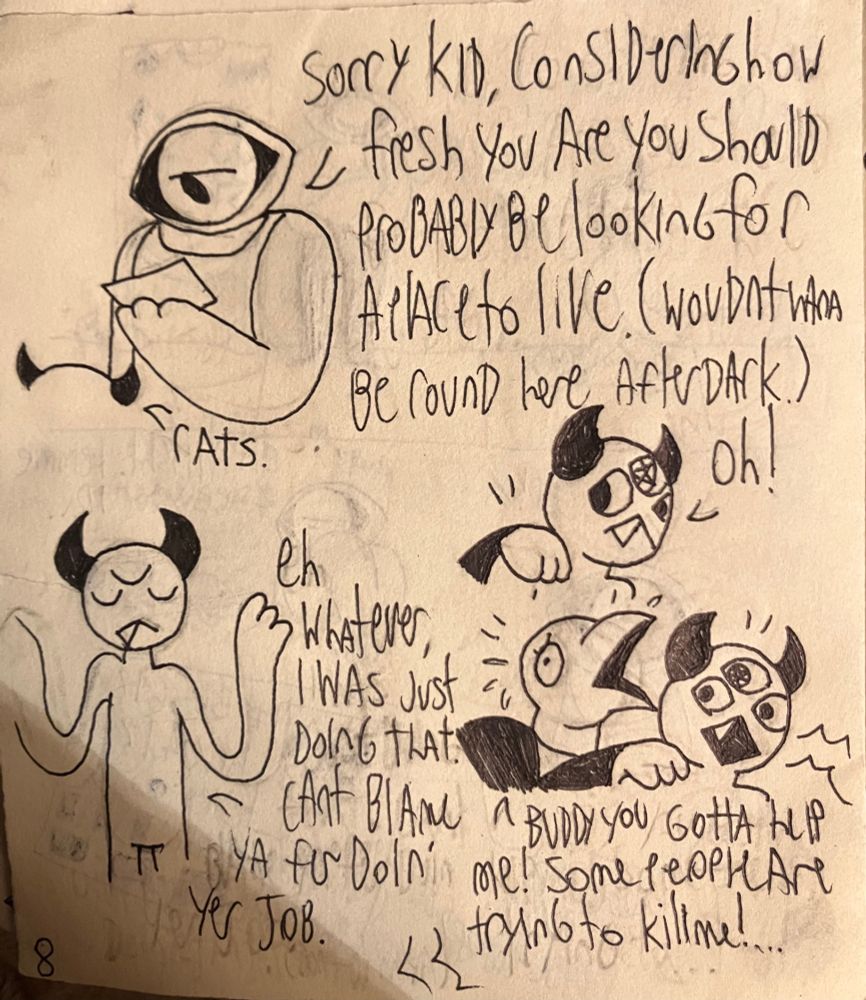 Sorry KID, CONSIDerINGhow
fresh You Are You ShoulD
proBABly Be lookINGfor
A PlACe to lIVe. (WOUDNt WANA
Be rounD here AfterDArk.)
rAts.
Oh!
eh
WhAtever,
I WAS Just
DOING THAT.
CANt BlAMe
YA fer DoIn'
Yer JOB.
BUDDY YOU GOTTA HelP
Me! Some PeOPle Are
tryINGto kill me!...
8